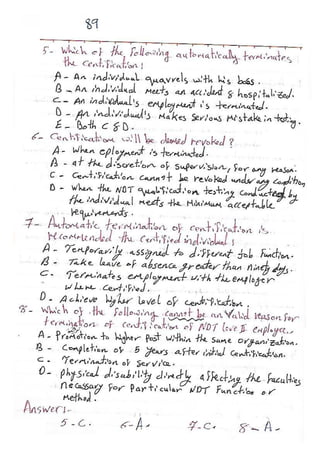 89
5- Which of the following automatically terminates
the Certification?
A - An individual quarrels with his boss.
B - An individual meets an accident & hospitalized.
C - An individual's employment is terminated.
D - An individual's makes serious mistake in testing.
E - Both C & D.
6- Certification will be deemed revoked?
A - When eployment is terminated.
B - at the discretion of supervision, for any reason.
C - Certification cannot be revoked under any condition
D - When the NDT qualification testing conducted by
the individual meets the Minimum acceptable
requirements.
7- Automatic termination of certification is
recommended the certified individual?
A - Temporarily assigned to different Job function.
B - Take leave of absence greater than Ninety days.
C - Terminates employment with the employer
where certified.
D - Achieve higher level of certification.
8- Which of the following cannot be an valid reason for
termination of certification of NDT level II employee.
A - Promotion to higher Post within the same organization.
B - Completion of 5 years after initial certification.
C - Termination of service.
D - physical disability directly affecting the faculties
necessary for particular NDT function or
Method.
Answers:-
5-C. 6-A. 7-C. 8-A.